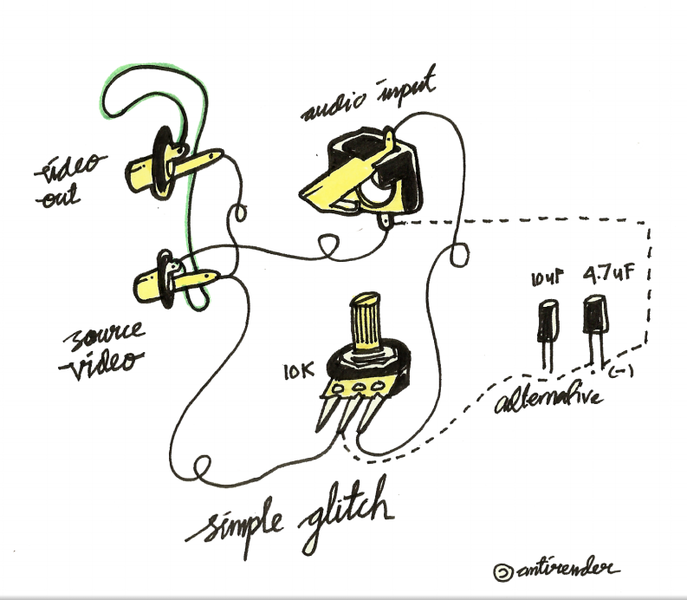 audio input
video
out
source
video
10K
10uF
4.7uF
(-)
alternative
simple glitch
© antirender